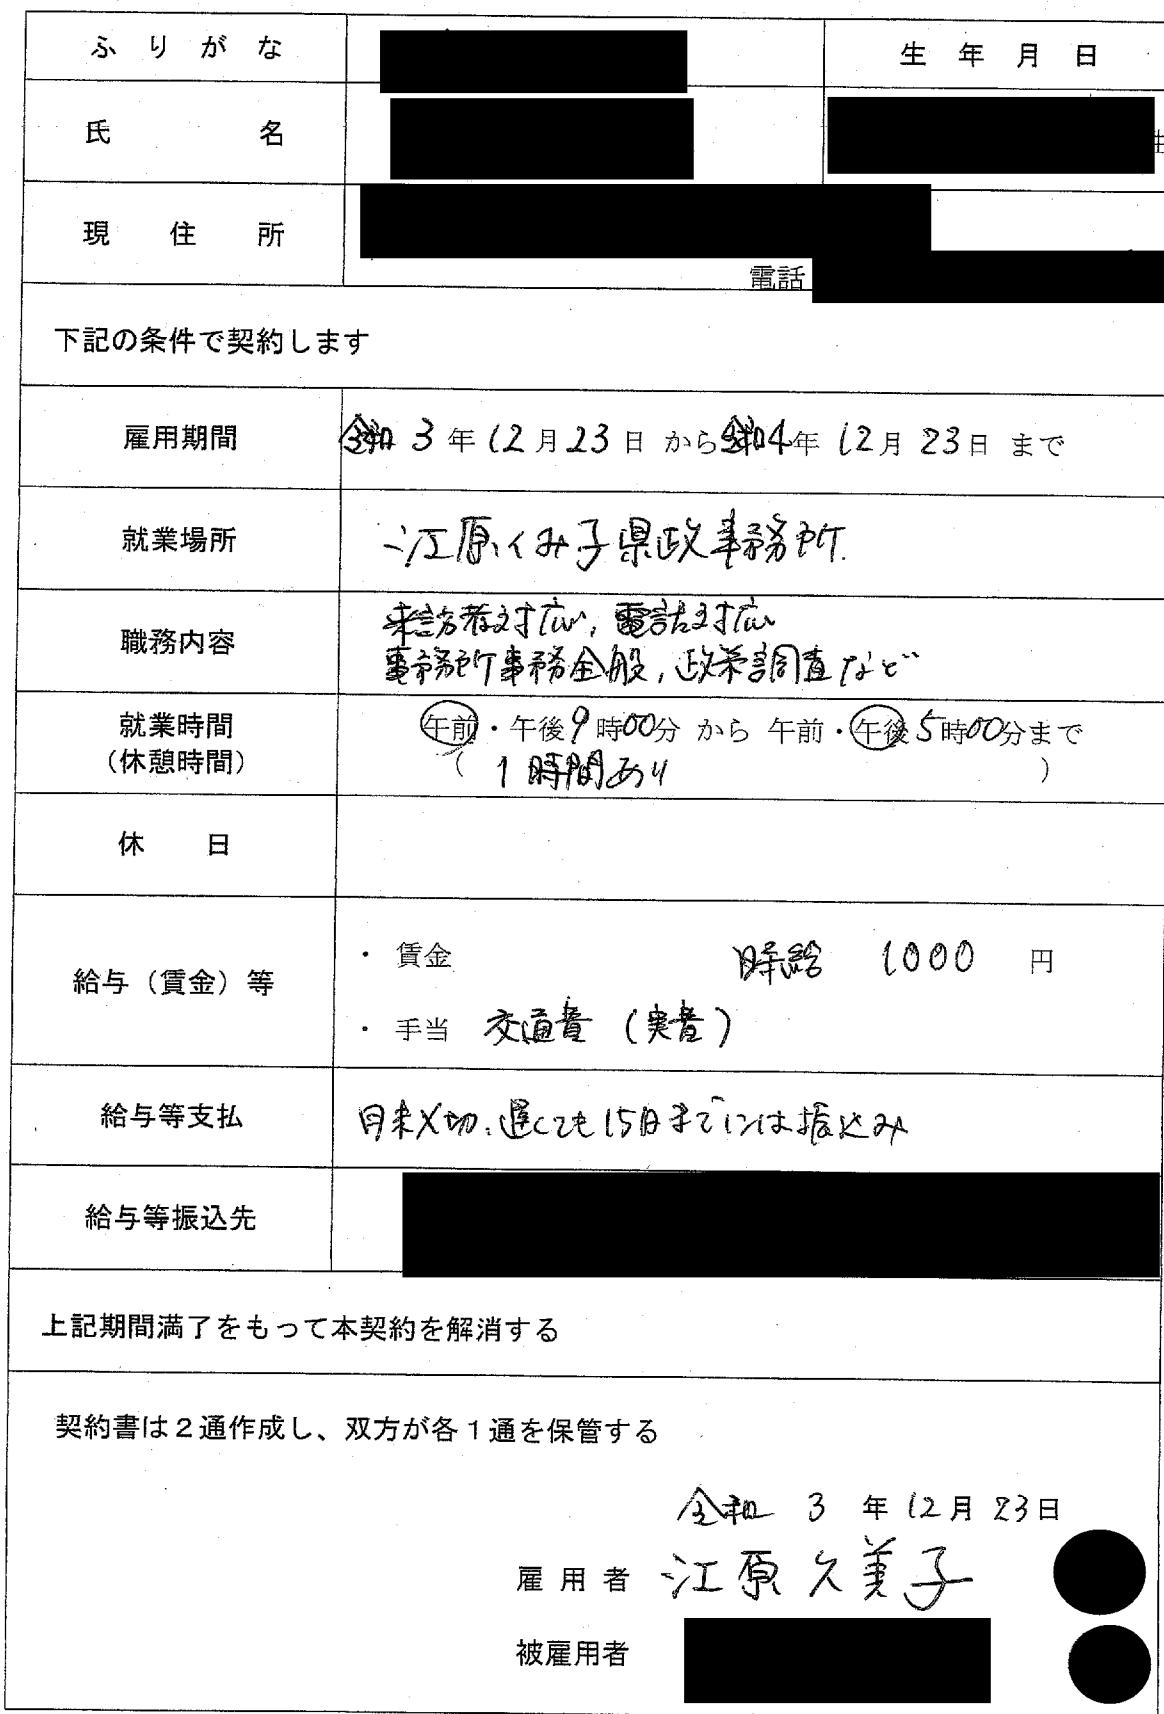 ふりがな
生年月日
氏名
現住所
電話
下記の条件で契約します
雇用期間 令和 3 年 12 月 23 日 から 令和 4 年 12 月 23 日 まで
就業場所 江原くみ子県政事務所.
職務内容 来訪者対応, 電話対応
事務所事務全般, 政策調査など
就業時間 午前・午後 9 時 00 分 から 午前・午後 5 時 00 分まで
(休憩時間) ( 1時間あり )
休日
給与（賃金）等 ・ 賃金 時給 1000 円
・ 手当 交通費 (実費)
給与等支払 月末〆切. 遅くても15日までには振込み
給与等振込先
上記期間満了をもって本契約を解消する
契約書は２通作成し、双方が各１通を保管する
令和 3 年 12 月 23 日
雇用者 江原久美子
被雇用者